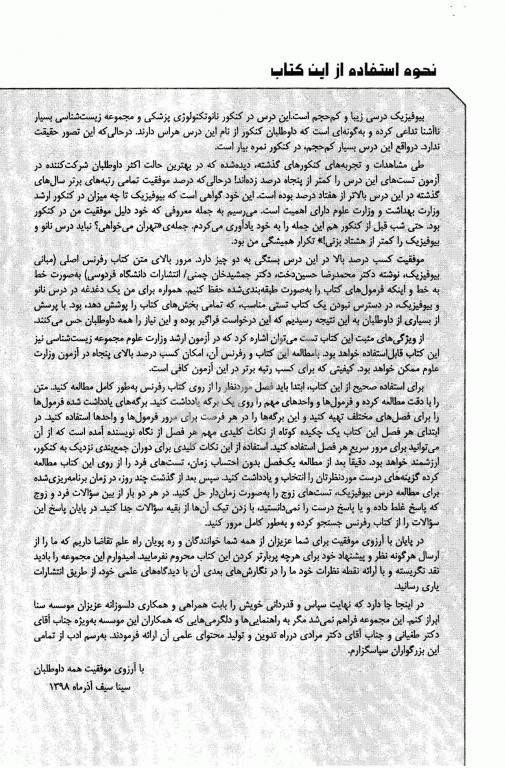 نحوه استفاده از این کتاب
بیوفیزیک درسی زیبا و کم‌حجم است.این درس در کنکور نانوتکنولوژی پزشکی و مجموعه زیست‌شناسی بسیار
ناآشنا تداعی کرده و به‌گونه‌ای است که داوطلبان کنکور از نام این درس هراس دارند. درحالی‌که این تصور حقیقت
ندارد. درواقع این درس بسیار کم‌حجم، در کنکور نمره بیار است.
طی مشاهدات و تجربه‌های کنکورهای گذشته، دیده‌شده که در بهترین حالت اکثر داوطلبان شرکت‌کننده در
آزمون تست‌های این درس را کمتر از پنجاه درصد زده‌اند! درحالی‌که درصد موفقیت تمامی رتبه‌های برتر سال‌های
گذشته در این درس بالاتر از هفتاد درصد بوده است. این خود گواهی است که بیوفیزیک تا چه میزان در کنکور ارشد
وزارت بهداشت و وزارت علوم دارای اهمیت است. می‌رسیم به جمله معروفی که خود دلیل موفقیت من در کنکور
بود. حتی شب قبل از کنکور هم این جمله را به خود یادآوری می‌کردم. جمله‌ی «تهران می‌خواهی؟ نباید درس نانو و
بیوفیزیک را کمتر از هشتاد بزنی!» تکرار همیشگی من بود.
موفقیت کسب درصد بالا در این درس بستگی به دو چیز دارد. مرور بالای متن کتاب رفرنس اصلی (مبانی
بیوفیزیک، نوشته دکتر محمدرضا حسین‌دخت، دکتر جمشیدخان چمنی/ انتشارات دانشگاه فردوسی) به‌صورت خط
به خط و اینکه فرمول‌های کتاب را به‌صورت طبقه‌بندی‌شده حفظ کنیم. همواره برای من یک دغدغه در درس نانو
و بیوفیزیک، در دسترس نبودن یک کتاب تستی مناسب، که تمامی بخش‌های کتاب را پوشش دهد، بود. با پرسش
از بسیاری از داوطلبان به این نتیجه رسیدیم که این درخواست فراگیر بوده و این نیاز را همه داوطلبان حس می‌کنند.
از ویژگی‌های مثبت این کتاب تست می‌توان اشاره کرد که در آزمون ارشد وزارت علوم مجموعه زیست‌شناسی نیز
این کتاب قابل‌استفاده خواهد بود. بامطالعه این کتاب و رفرنس آن، امکان کسب درصد بالای پنجاه در آزمون وزارت
علوم ممکن خواهد بود. کیفیتی که برای کسب رتبه برتر در این آزمون کافی است.
برای استفاده صحیح از این کتاب، ابتدا باید فصل موردنظر را از روی کتاب رفرنس به‌طور کامل مطالعه کنید. متن
را با دقت مطالعه کرده و فرمول‌ها و واحدهای مهم را روی یک برگه یادداشت کنید. برگه‌های یادداشت شده فرمول‌ها
را برای فصل‌های مختلف تهیه کنید و این برگه‌ها را در هر فرصت برای مرور فرمول‌ها و واحدها استفاده کنید. در
ابتدای هر فصل این کتاب یک چکیده کوتاه از نکات کلیدی مهم هر فصل از نگاه نویسنده آمده است که از آن
می‌توانید برای مرور سریع هر فصل استفاده کنید. استفاده از این نکات کلیدی برای دوران جمع‌بندی نزدیک به کنکور،
ارزشمند خواهد بود. دقیقا بعد از مطالعه یک‌فصل بدون احتساب زمان، تست‌های فرد را از روی این کتاب مطالعه
کرده گزینه‌های درست موردنظرتان را انتخاب و یادداشت کنید. سپس بعد از گذشت چند روز، در زمان برنامه‌ریزی‌شده
برای مطالعه درس بیوفیزیک، تست‌های زوج را به‌صورت زمان‌دار حل کنید. در هر دو بار از بین سؤالات فرد و زوج
که پاسخ غلط داده و یا پاسخ درست را نمی‌دانستید، با زدن تیک آن‌ها از بقیه سؤالات جدا کنید. در پایان پاسخ این
سؤالات را از کتاب رفرنس جستجو کرده و به‌طور کامل مرور کنید.
در پایان با آرزوی موفقیت برای شما عزیزان از همه شما خوانندگان و ره پویان راه علم تقاضا داریم که ما را از
ارسال هرگونه نظر و پیشنهاد خود برای هرچه پربارتر کردن این کتاب محروم نفرمایید. امیدوارم این مجموعه را بادید
نقد نگریسته و با ارائه نقطه نظرات خود ما را در نگارش‌های بعدی آن با دیدگاه‌های علمی خود، از طریق انتشارات
یاری رسانید.
در اینجا جا دارد که نهایت سپاس و قدردانی خویش را بابت همراهی و همکاری دلسوزانه عزیزان موسسه سنا
ابراز کنم. این مجموعه فراهم نمی‌شد مگر به راهنمایی‌ها و دلگرمی‌هایی که همکاران این موسسه به‌ویژه جناب آقای
دکتر طغیانی و جناب آقای دکتر مرادی درراه تدوین و تولید محتوای علمی آن ارائه فرمودند. به‌رسم ادب از تمامی
این بزرگواران سپاسگزارم.
با آرزوی موفقیت همه داوطلبان
سینا سیف آذرماه ۱۳۹۸